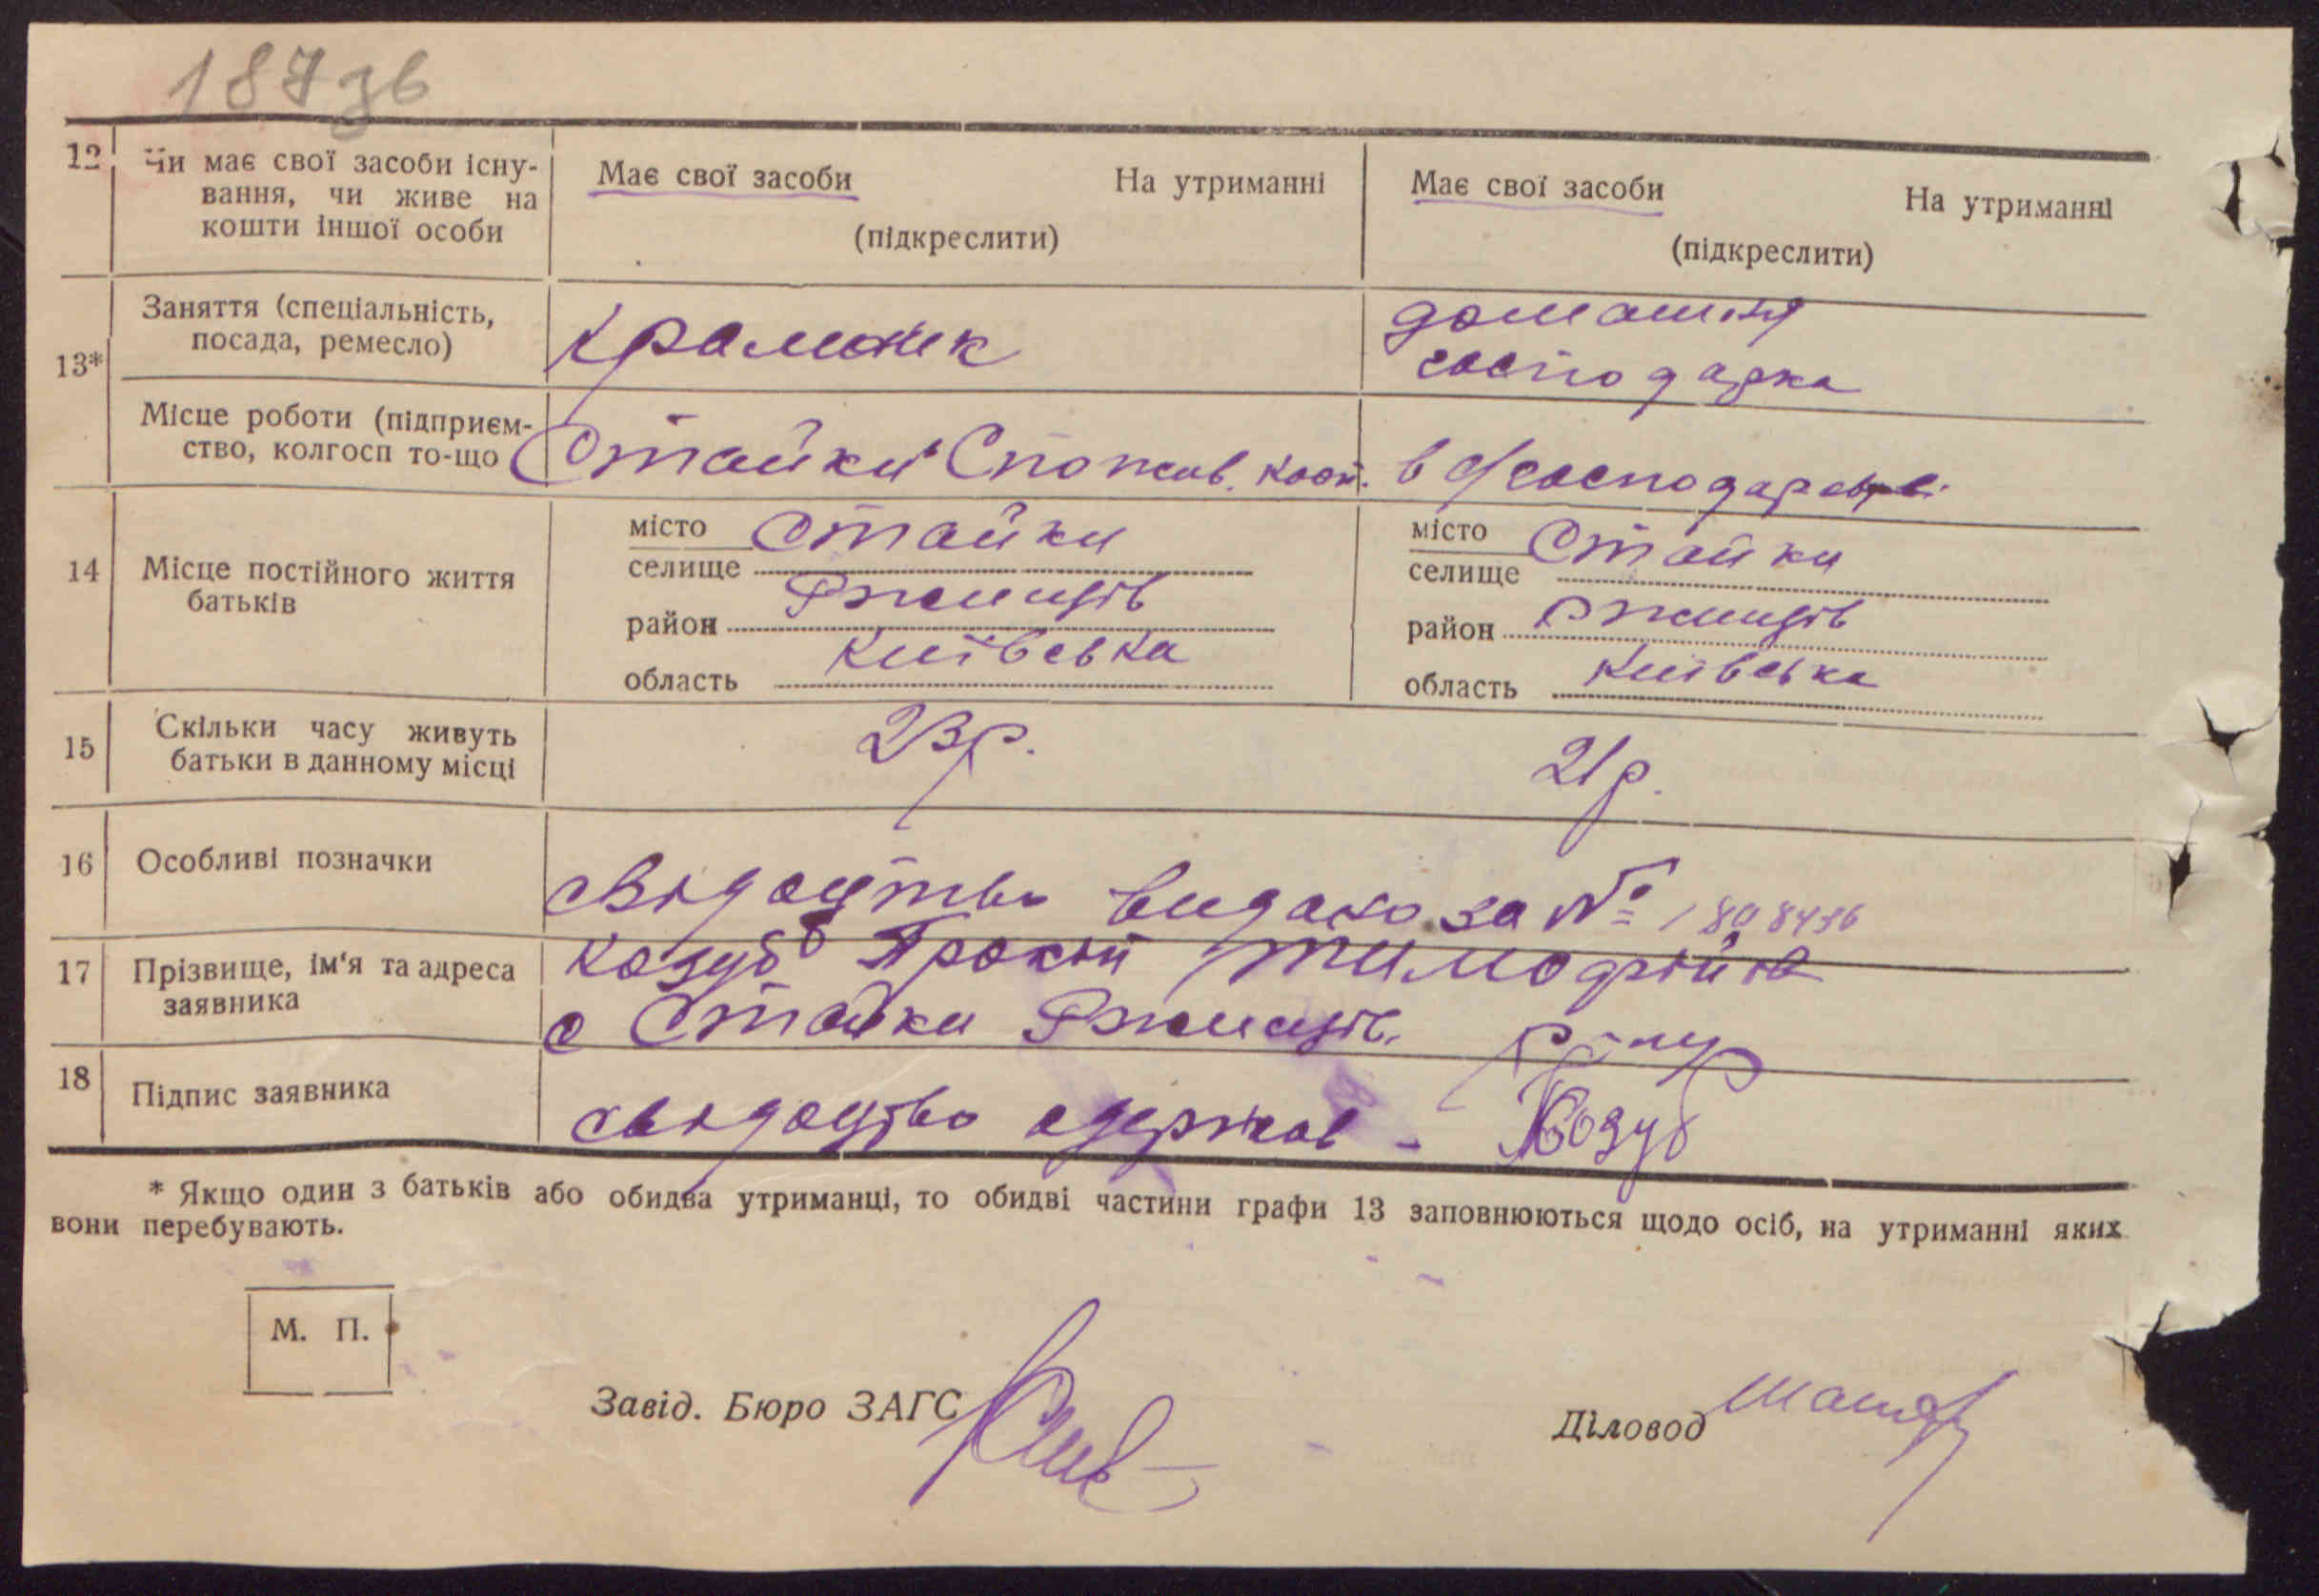 187 зв
12 Чи має свої засоби існу-
вання, чи живе на
кошти іншої особи
Має свої засоби На утриманні
(підкреслити)
Має свої засоби На утриманні
(підкреслити)
13*
Заняття (спеціальність,
посада, ремесло)
Крамник
домашня
господарка
Місце роботи (підприєм-
ство, колгосп то-що
Стайки Спожив. кооп.
в господарстві
14 Місце постійного життя
батьків
місто Стайки
селище
район Ржищів
область Київська
місто Стайки
селище
район Ржищів
область Київська
15 Скільки часу живуть
батьки в данному місці
23р.
21р.
16 Особливі позначки
Свідоцтво видано за № 1808436
17 Прізвище, ім'я та адреса
заявника
Козуб Прокіп Тимофійов
с Стайки Ржищів.
18 Підпис заявника
свідоцтво одержав - Козуб
* Якщо один з батьків або обидва утриманці, то обидві частини графи 13 заповнюються щодо осіб, на утриманні яких
вони перебувають.
М. П.
Завід. Бюро ЗАГС
Діловод